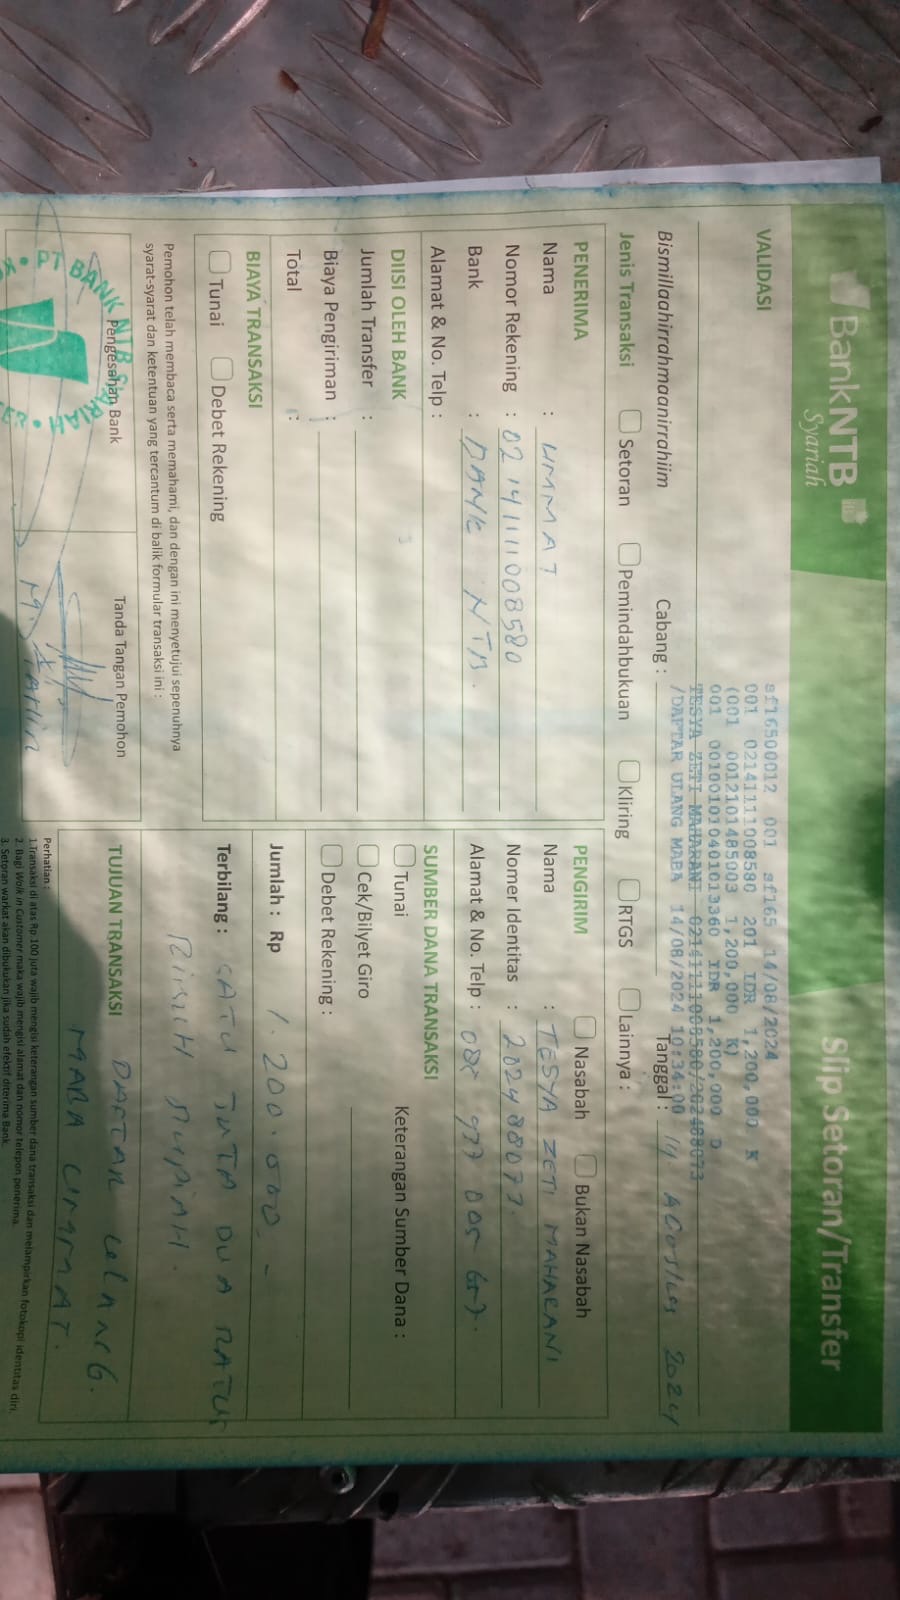 BankNTB
Syariah
Slip Setoran/Transfer
VALIDASI
sf16500012 001 sf165 14/08/2024
001 0214111108580 201 IDR 1,200,000 K
(001 0012101485003 1,200,000 K)
001 0010010104010133360 IDR 1,200,000 D
TESYA ZETI MAHARANI 0214111108580/202488073
/DAFTAR ULANG MABA 14/08/2024 10:34:00
Bismillaahirrahmaanirrahiim
Cabang :
Tanggal : 14 AGUSTUS 2024
Jenis Transaksi
Setoran
Pemindahbukuan
Kliring
RTGS
Lainnya :
PENERIMA
Nama : UMMAT
Nomor Rekening : 0214111008580
Bank : BANK NTB.
Alamat & No. Telp :
PENGIRIM
Nasabah
Bukan Nasabah
Nama : TESYA ZETI MAHARANI
Nomer Identitas : 202488073.
Alamat & No. Telp :
DIISI OLEH BANK
Jumlah Transfer :
Biaya Pengiriman :
Total :
SUMBER DANA TRANSAKSI
Tunai
Keterangan Sumber Dana :
Cek/Bilyet Giro
Debet Rekening :
BIAYA TRANSAKSI
Tunai
Debet Rekening
Jumlah : Rp 1.200.000.-
Terbilang : SATU JUTA DUA RATUS
RIBUH RUPIAH.
Pemohon telah membaca serta memahami, dan dengan ini menyetujui sepenuhnya
syarat-syarat dan ketentuan yang tercantum di balik formular transaksi ini :
Pengesahan Bank
PT BANK NTB SYARIAH
Tanda Tangan Pemohon
TUJUAN TRANSAKSI
DAFTAR ULANG.
MABA UMMAT.
Perhatian :
1.Transaksi di atas Rp 100 juta wajib mengisi keterangan sumber dana transaksi dan melampirkan fotokopi identitas diri.
2. Bagi Walk in Customer maka wajib mengisi alamat dan nomor telepon penerima.
3. Setoran warkat akan dibukukan jika sudah efektif diterima Bank.